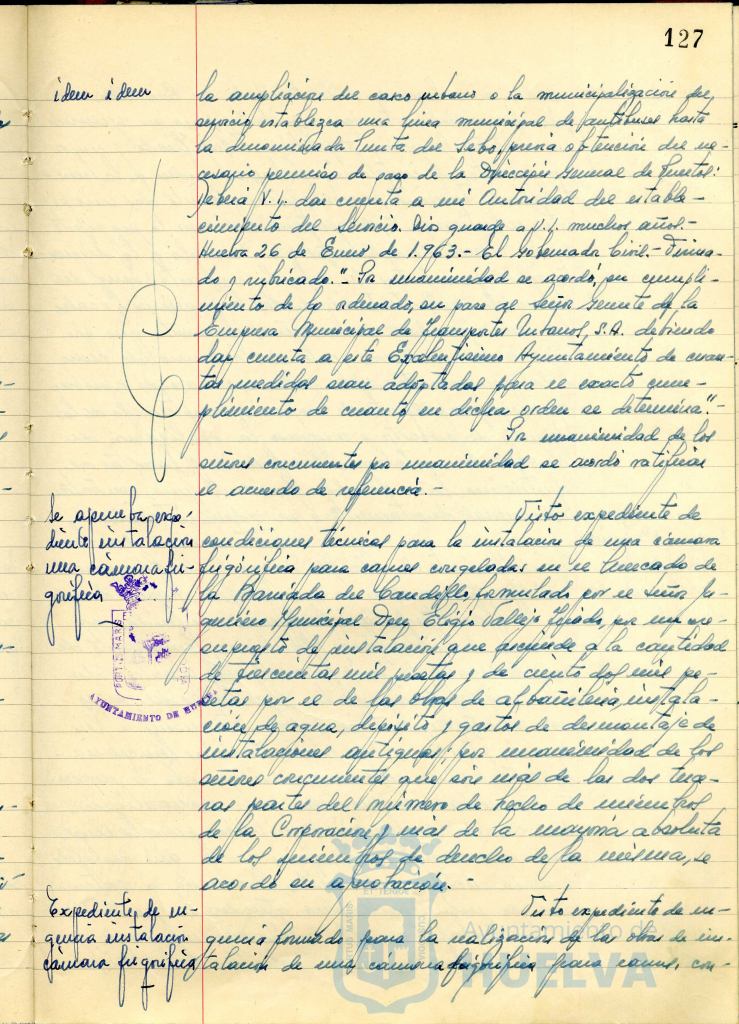 127
idem idem
la ampliación del casco urbano o la municipalización del
servicio establezca una línea municipal de autobuses hasta
la denominada Punta del Sebo, previa obtención del ne-
cesario permiso de paso de la Dirección General de Puertos:
Deberá V.I. dar cuenta a mi Autoridad del estable-
cimiento del Servicio. Dios guarde a V.I. muchos años.-
Huelva 26 de Enero de 1.963.- El Gobernador Civil.- Firma-
do y rubricado."- Por unanimidad se acordó, en cumpli-
miento de lo ordenado, se pase al Señor Gerente de la
Empresa Municipal de Transportes Urbanos, S.A. debiendo
dar cuenta a este Excelentísimo Ayuntamiento de cuan-
tas medidas sean adoptadas para el exacto cum-
plimiento de cuanto en dicha orden se determina".-
Por unanimidad de los
señores concurrentes por unanimidad se acordó ratificar
el acuerdo de referencia.-
Se aprueba expe-
diente instalación
una cámara fri-
gorífica
Visto expediente de
condiciones técnicas para la instalación de una cámara
frigorífica para carnes congeladas en el Mercado de
la Barriada del Carmen formulado por el Señor In-
geniero Municipal Don Eligio Vallejo, por un pre-
supuesto de instalación que asciende a la cantidad
de trescientas mil pesetas y de ciento dos mil pe-
setas por el de las obras de albañilería, instala-
ción de agua, depósito y gastos de desmontaje de
instalaciones antiguas; por unanimidad de los
señores concurrentes que son más de las dos terce-
ras partes del número de hecho de miembros
de la Corporación y más de la mayoría absoluta
de los miembros de derecho de la misma, se
acordó su aprobación.-
AYUNTAMIENTO DE HUELVA
Expediente de ur-
gencia instalación
cámara frigorífica
Visto expediente de ur-
gencia formado para la realización de las obras de ins-
talación de una cámara frigorífica para carnes con-
Ayuntamiento de
HUELVA